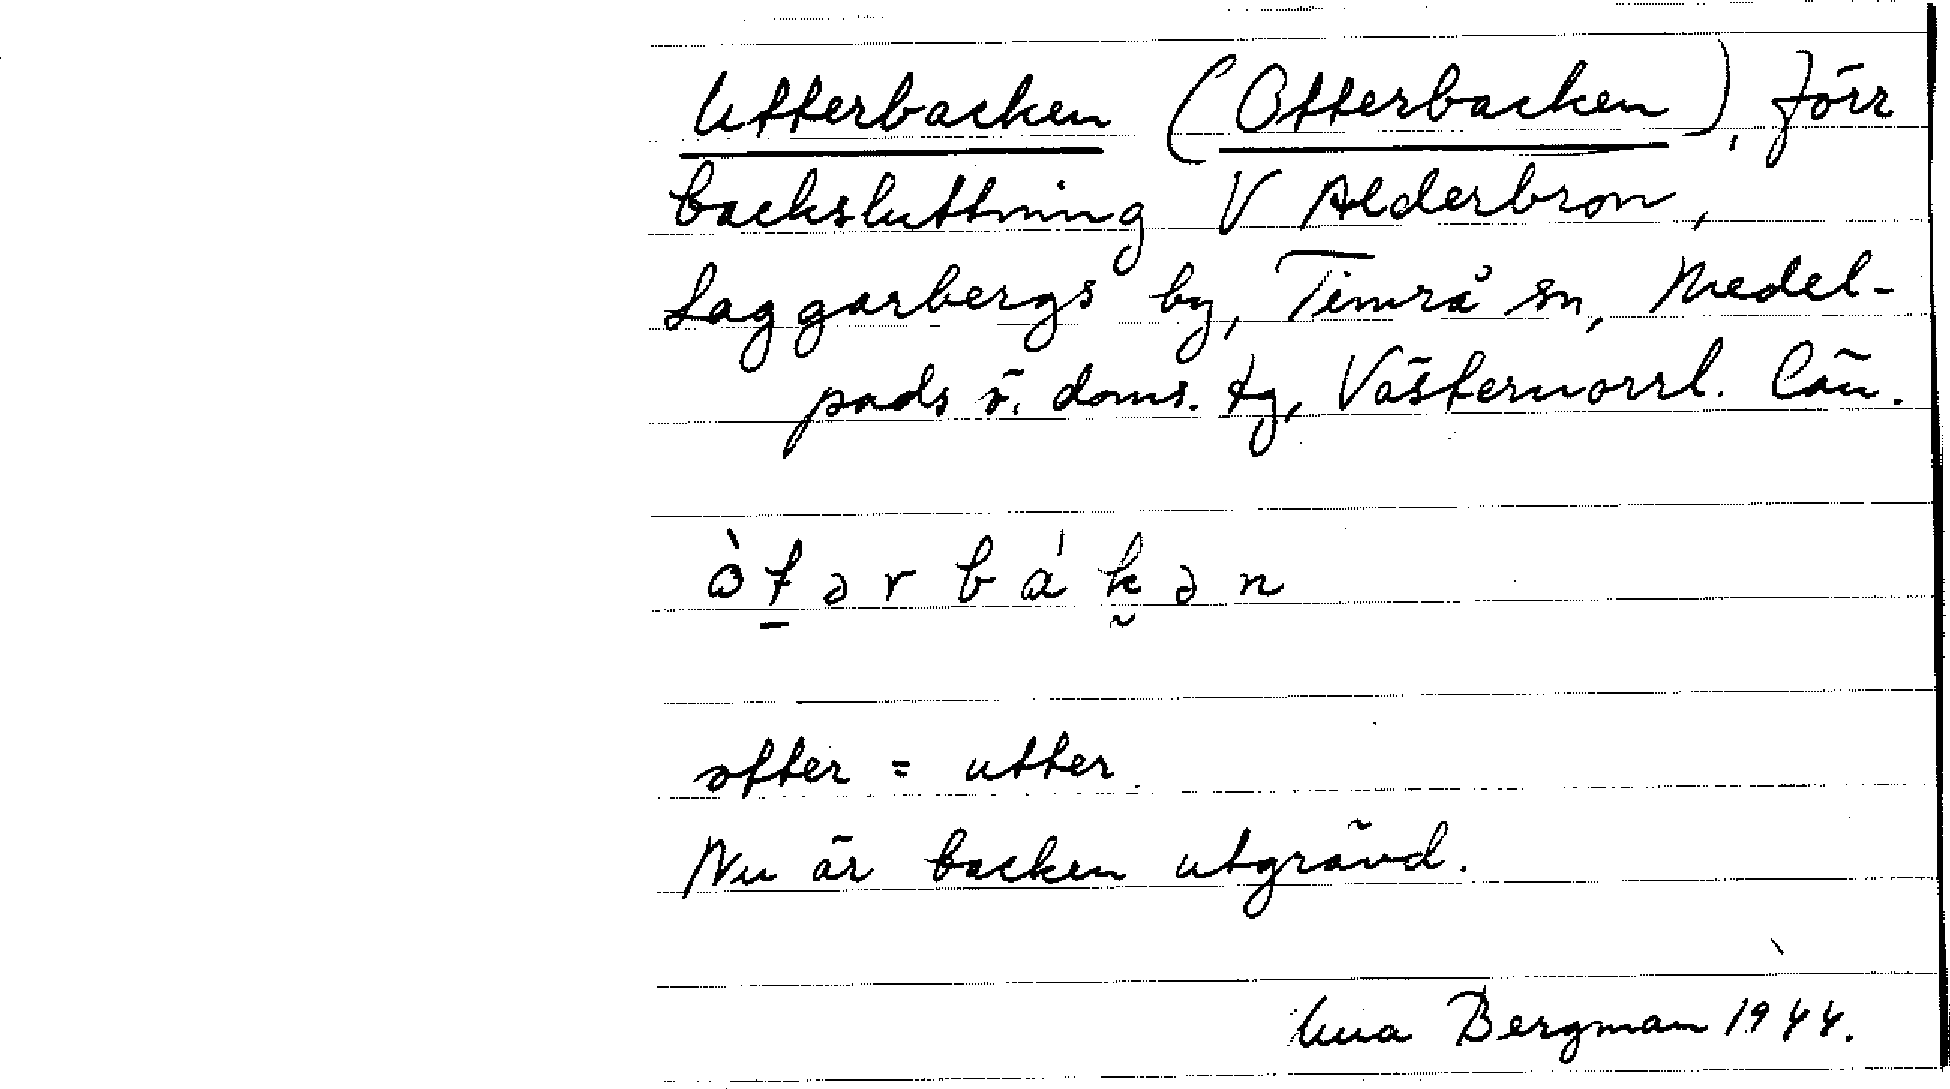 Utterbacken (Otterbacken), förr
backsluttning V Alderbron,
Laggarbergs by, Timrå sn, Medel-
pads ö. doms. tg, Västernorrl. län.
òt̠ərbák̰ən
otter = utter
Nu är backen utgrävd.
Una Bergman 1944.